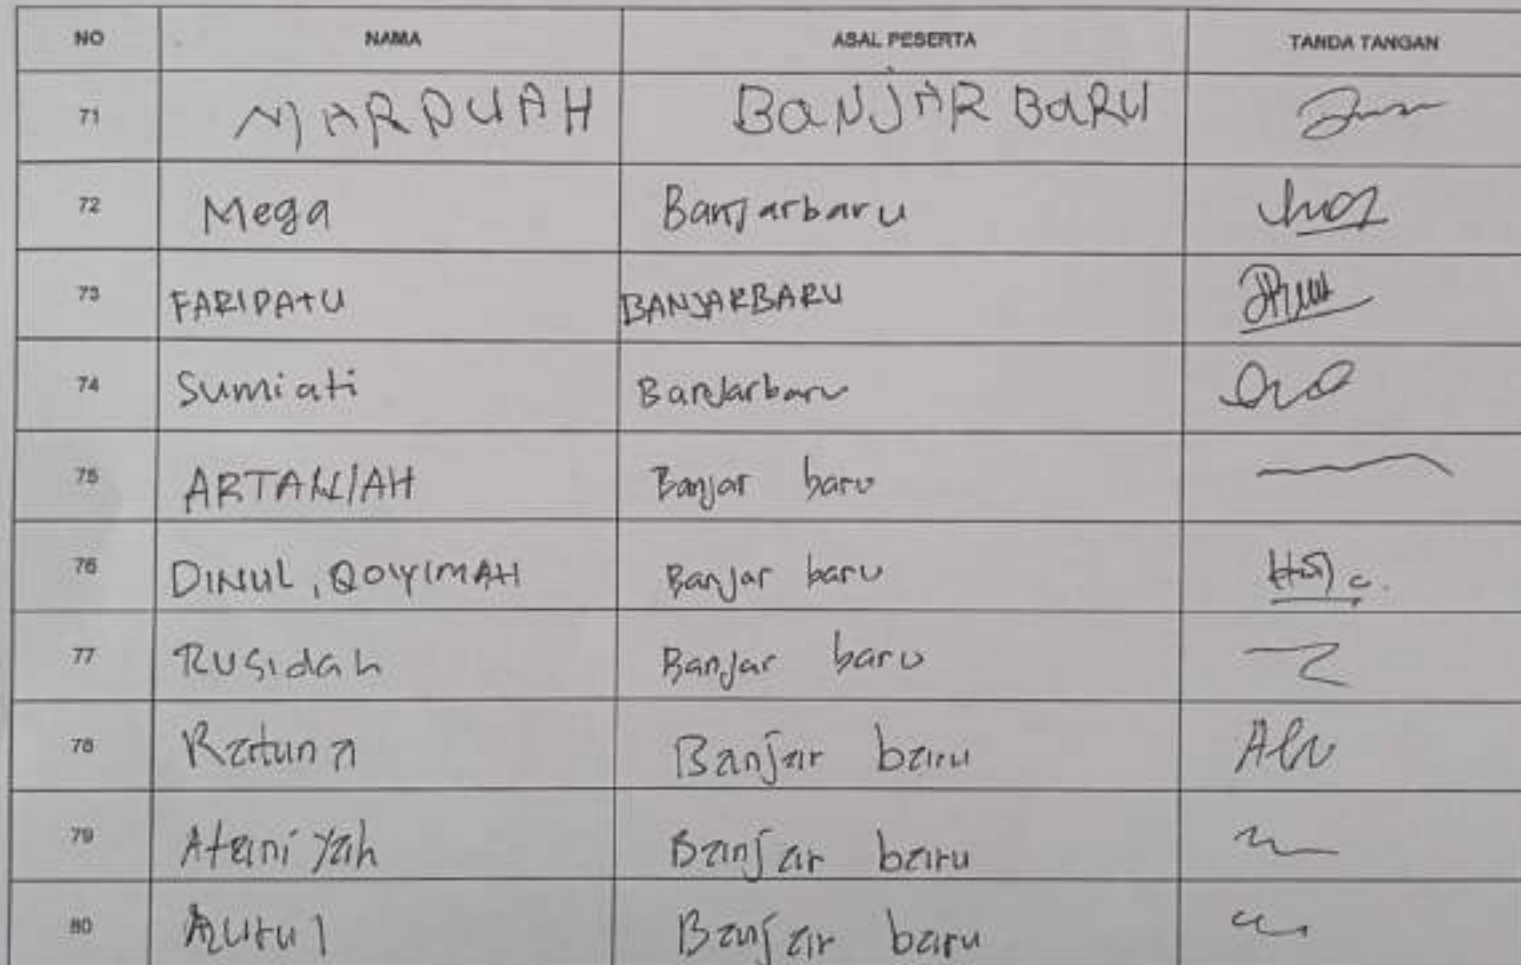 NO NAMA ASAL PESERTA TANDA TANGAN
71 MARDUAH BANJAR BARU
72 Mega Banjarbaru
73 FARIDATU BANJARBARU
74 Sumiati Banjarbaru
75 Banjar baru
76 DINUL, QOYYIMAH Banjar baru
77 Rusidah Banjar baru
78 Ratuna Banjar baru
79 Banjar baru
80 Banjar baru